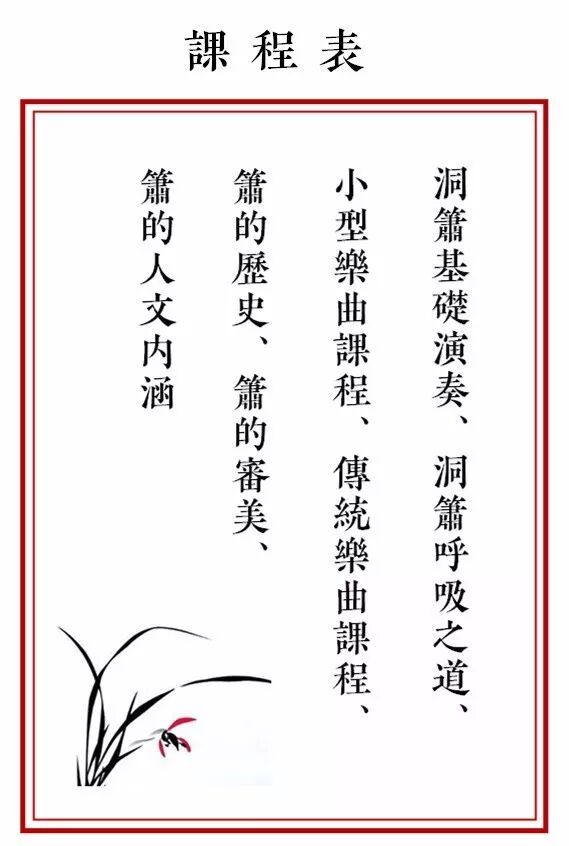 課程表
洞簫基礎演奏、洞簫呼吸之道、
小型樂曲課程、傳統樂曲課程、
簫的歷史、簫的審美、
簫的人文内涵